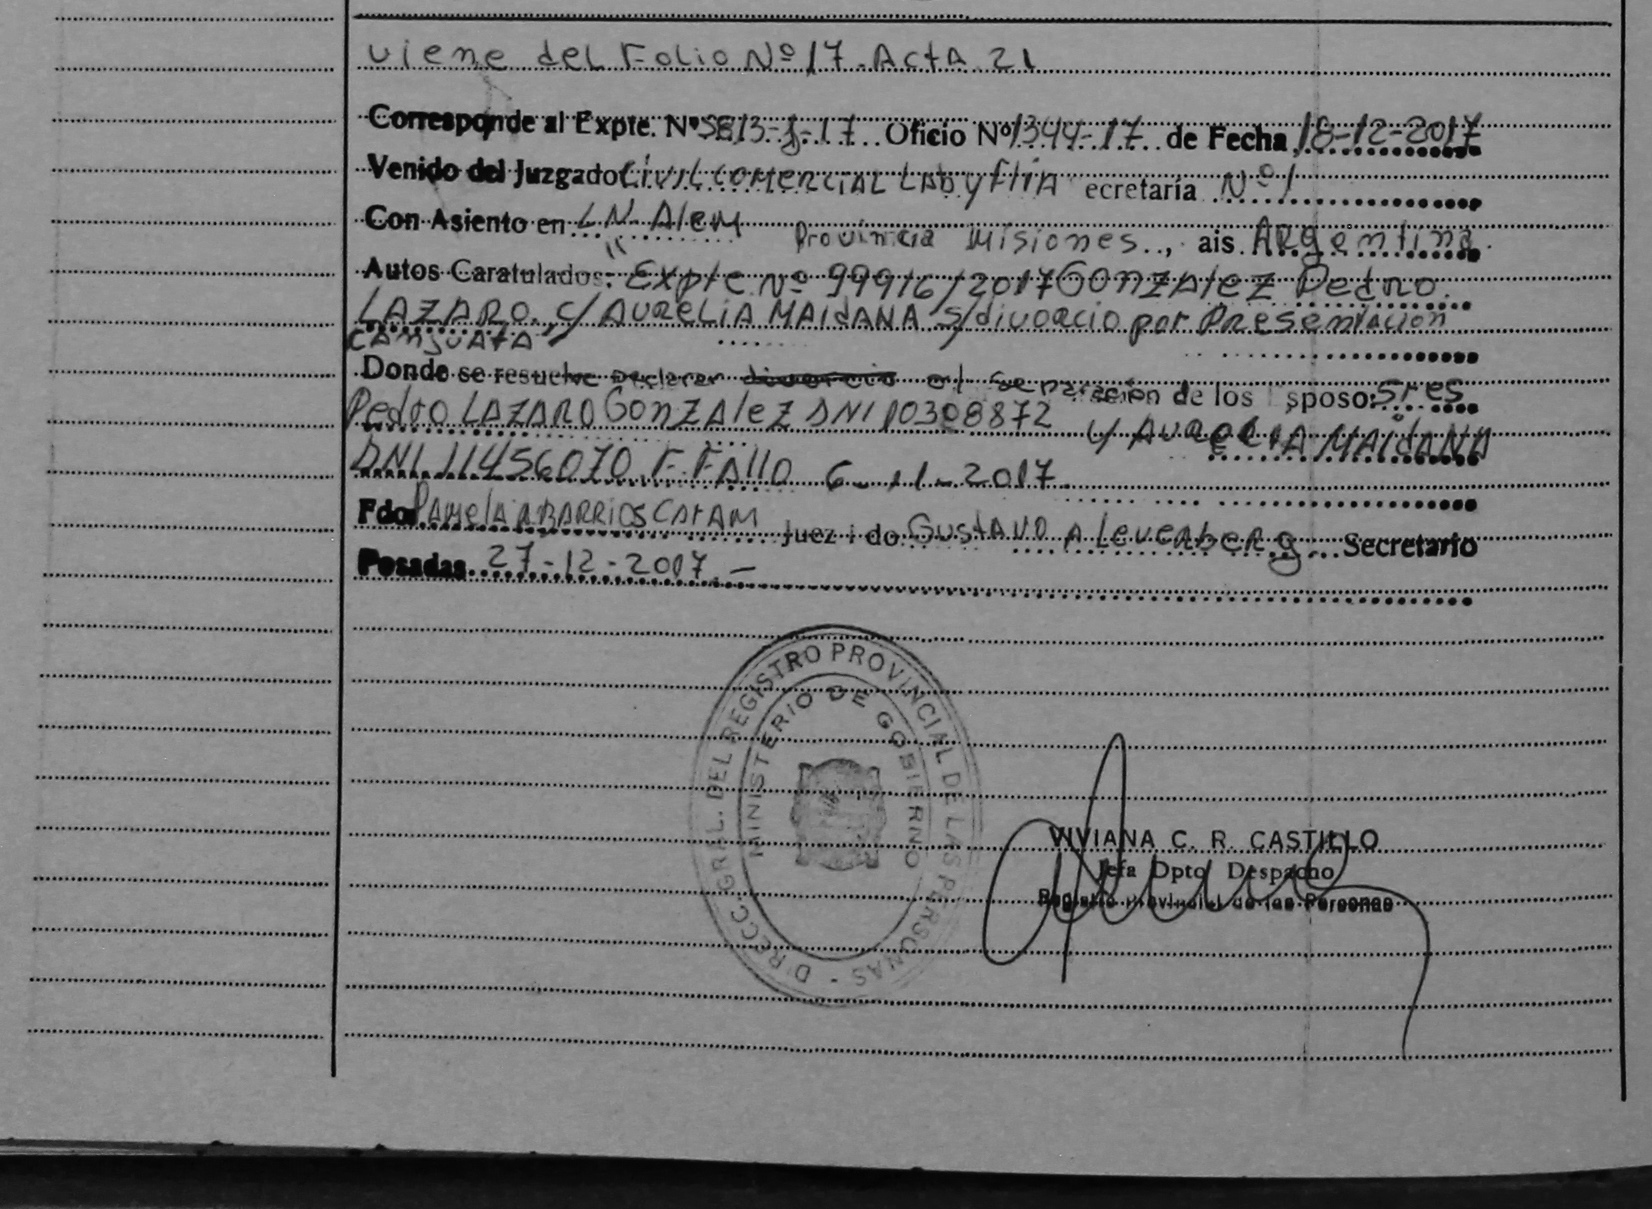 viene del Folio Nº 17. Acta 21
Corresponde al Expte. Nº 5813-J-17 Oficio Nº 1344-17 de Fecha 18-12-2017
Venido del Juzgado Civil Comercial Lab y Flia ecretaría Nº 1
Con Asiento en L N. Alem Provincia Misiones, ais Argentina.
Autos Caratulados: "Expte Nº 99916/2017 Gonzalez Pedro
LAZARO. c/ AURELIA MAIDANA s/divorcio por Presentacion
CONJUNTA"
Donde se resuelve Declarar el Separación de los sposos Sres
Pedro LAZARO GonZAlez DNI 10308872 y AURELIA MAIDANA
DNI. 11456070. F. FAllo 6-11-2017.
Fdo PAMelA A BARRIOS Juez do Gustavo A Leverberg Secretario
Posadas 27-12-2017.-
DIRECC. GRAL. DEL REGISTRO PROVINCIAL DE LAS PERSONAS -
MINISTERIO DE GOBIERNO
VIVIANA C. R. CASTILLO
Jefa Dpto Despacho
Registro Provincial de las Personas